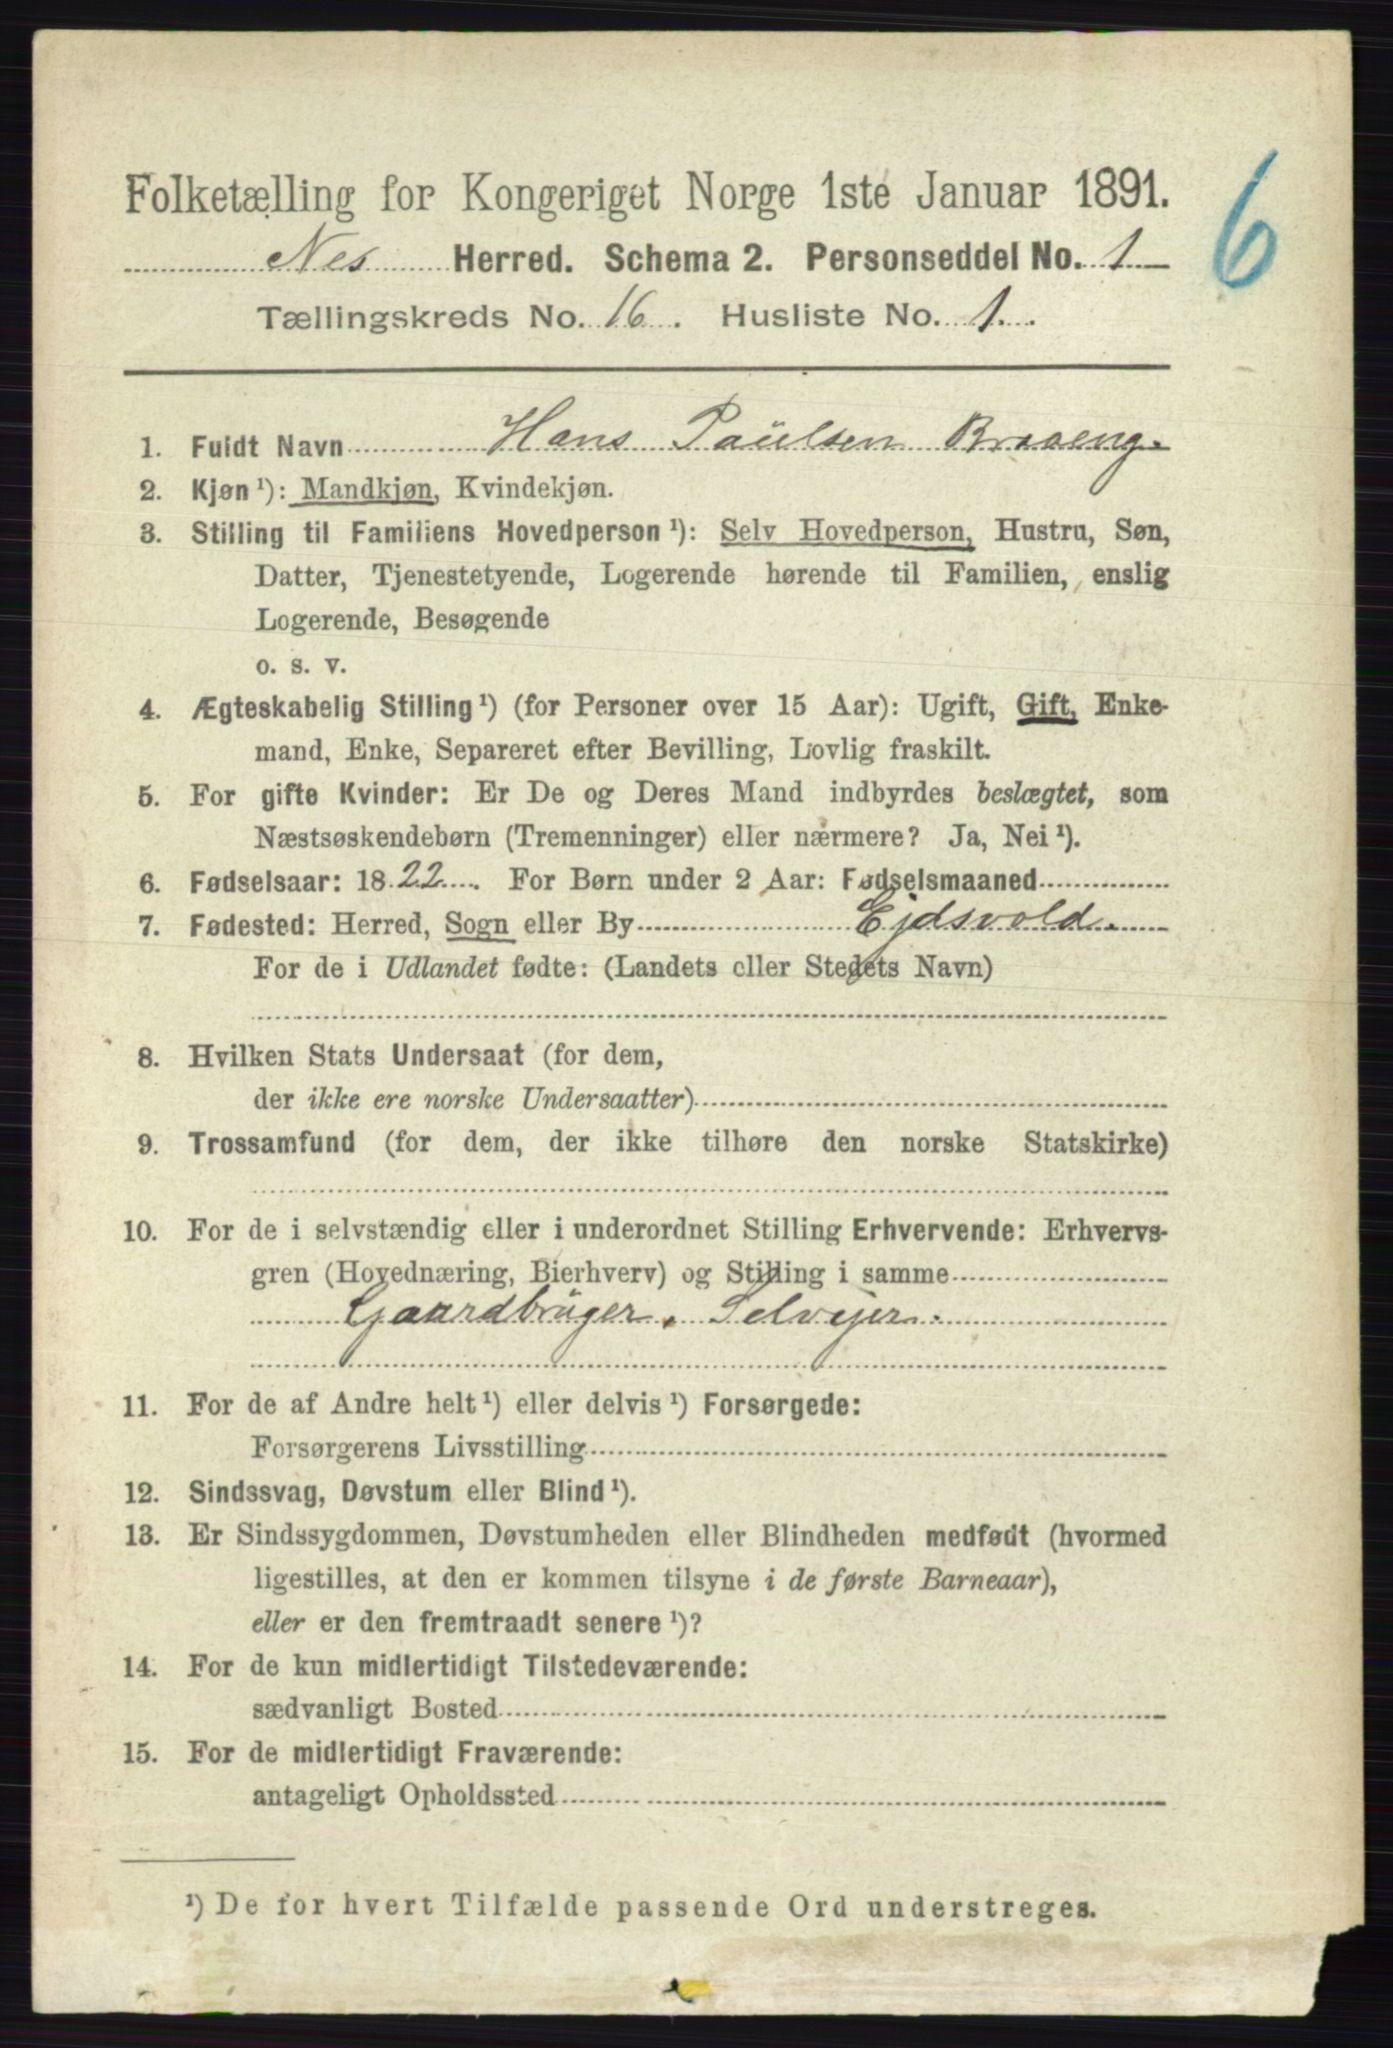 Folketælling for Kongeriget Norge 1ste Januar 1891.
6
Nes Herred. Schema 2. Personseddel No. 1
Tællingskreds No. 16. Husliste No. 1.
1. Fuldt Navn Hans Paulsen Braaeng.
2. Kjøn¹): Mandkjøn, Kvindekjøn.
3. Stilling til Familiens Hovedperson¹): Selv Hovedperson, Hustru, Søn,
Datter, Tjenestetyende, Logerende hørende til Familien, enslig
Logerende, Besøgende
o. s. v.
4. Ægteskabelig Stilling¹) (for Personer over 15 Aar): Ugift, Gift, Enke-
mand, Enke, Separeret efter Bevilling, Lovlig fraskilt.
5. For gifte Kvinder: Er De og Deres Mand indbyrdes beslægtet, som
Næstsøskendebørn (Tremenninger) eller nærmere? Ja, Nei¹).
6. Fødselsaar: 1822. For Børn under 2 Aar: Fødselsmaaned
7. Fødested: Herred, Sogn eller By Ejdsvold.
For de i Udlandet fødte: (Landets eller Stedets Navn)
8. Hvilken Stats Undersaat (for dem,
der ikke ere norske Undersaatter)
9. Trossamfund (for dem, der ikke tilhøre den norske Statskirke)
10. For de i selvstændig eller i underordnet Stilling Erhvervende: Erhvervs-
gren (Hovednæring, Bierhverv) og Stilling i samme
Gaardbruger, Selvejer.
11. For de af Andre helt¹) eller delvis¹) Forsørgede:
Forsørgerens Livsstilling
12. Sindssvag, Døvstum eller Blind¹).
13. Er Sindssygdommen, Døvstumheden eller Blindheden medfødt (hvormed
ligestilles, at den er kommen tilsyne i de første Barneaar),
eller er den fremtraadt senere¹)?
14. For de kun midlertidigt Tilstedeværende:
sædvanligt Bosted
15. For de midlertidigt Fraværende:
antageligt Opholdssted
¹) De for hvert Tilfælde passende Ord understreges.